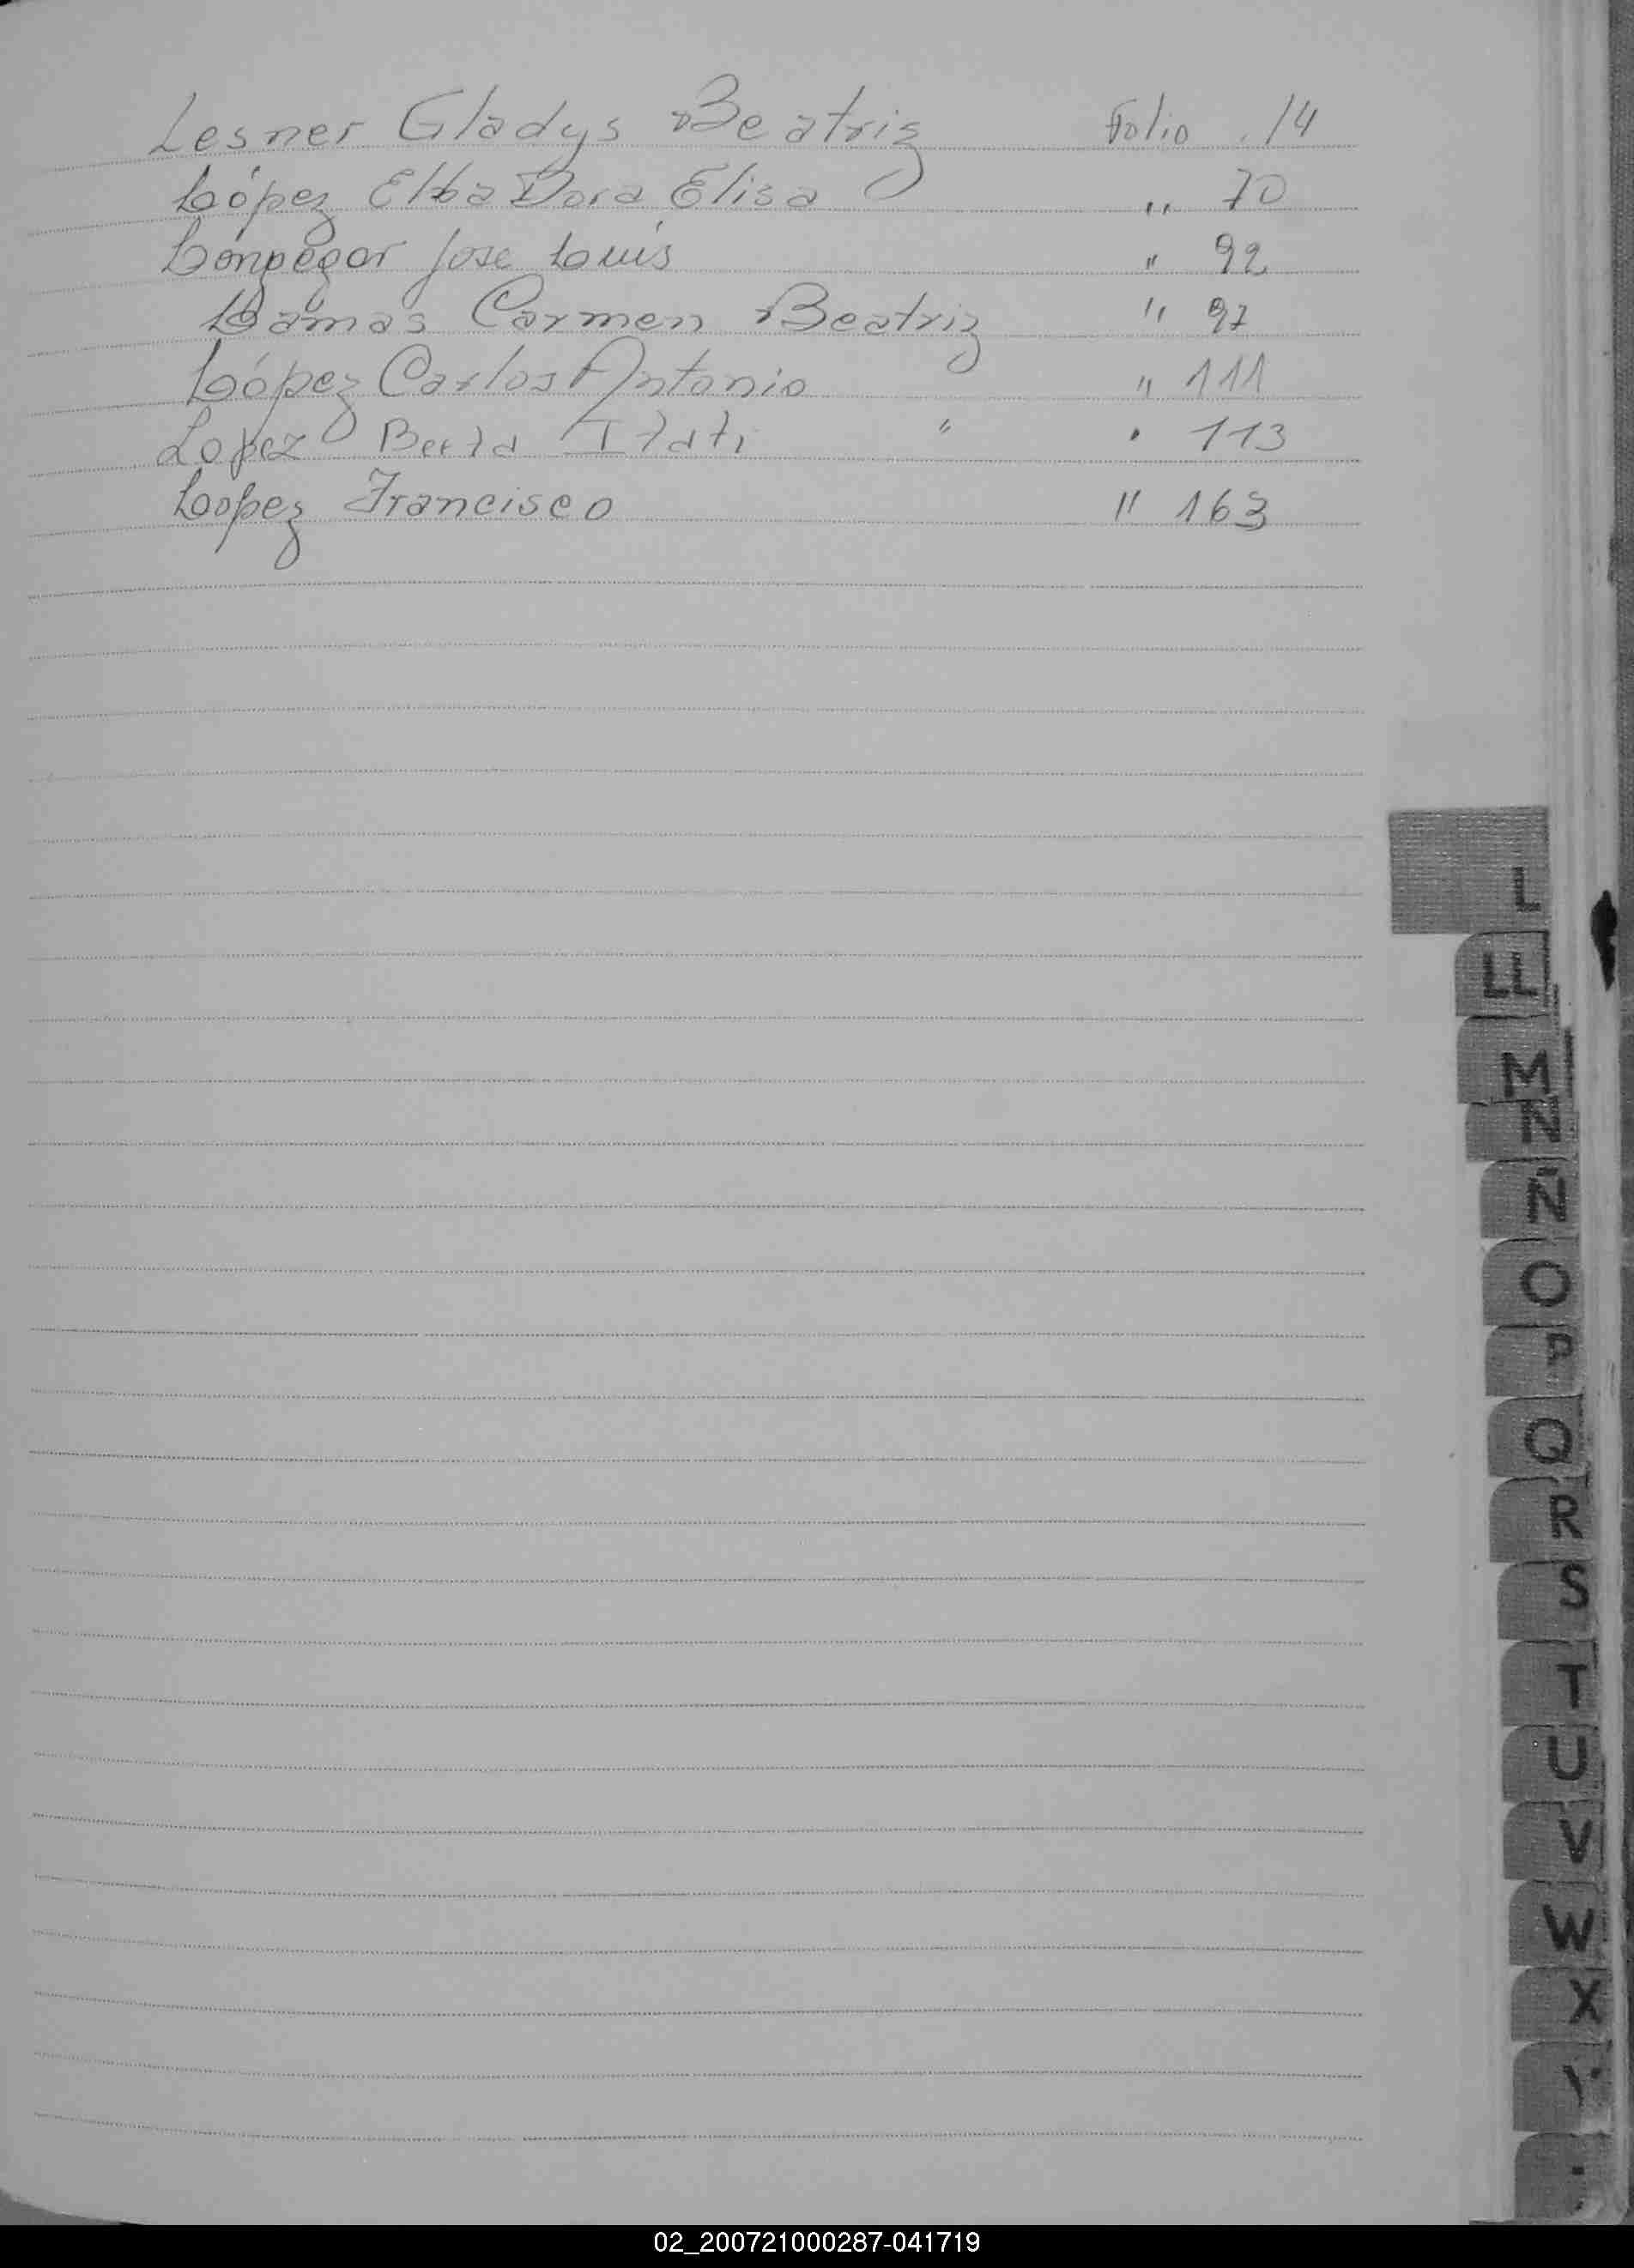 Lesner Gladys Beatriz Folio . 14
López Elba Dora Elisa " 70
Jose Luis " 92
Lamas Carmen Beatriz " 97
López Carlos Antonio " 111
Lopez Berta Itati " " 113
Lopez Francisco " 163
L
LL
M
N
Ñ
O
P
Q
R
S
T
U
V
W
X
Y
02_200721000287-041719